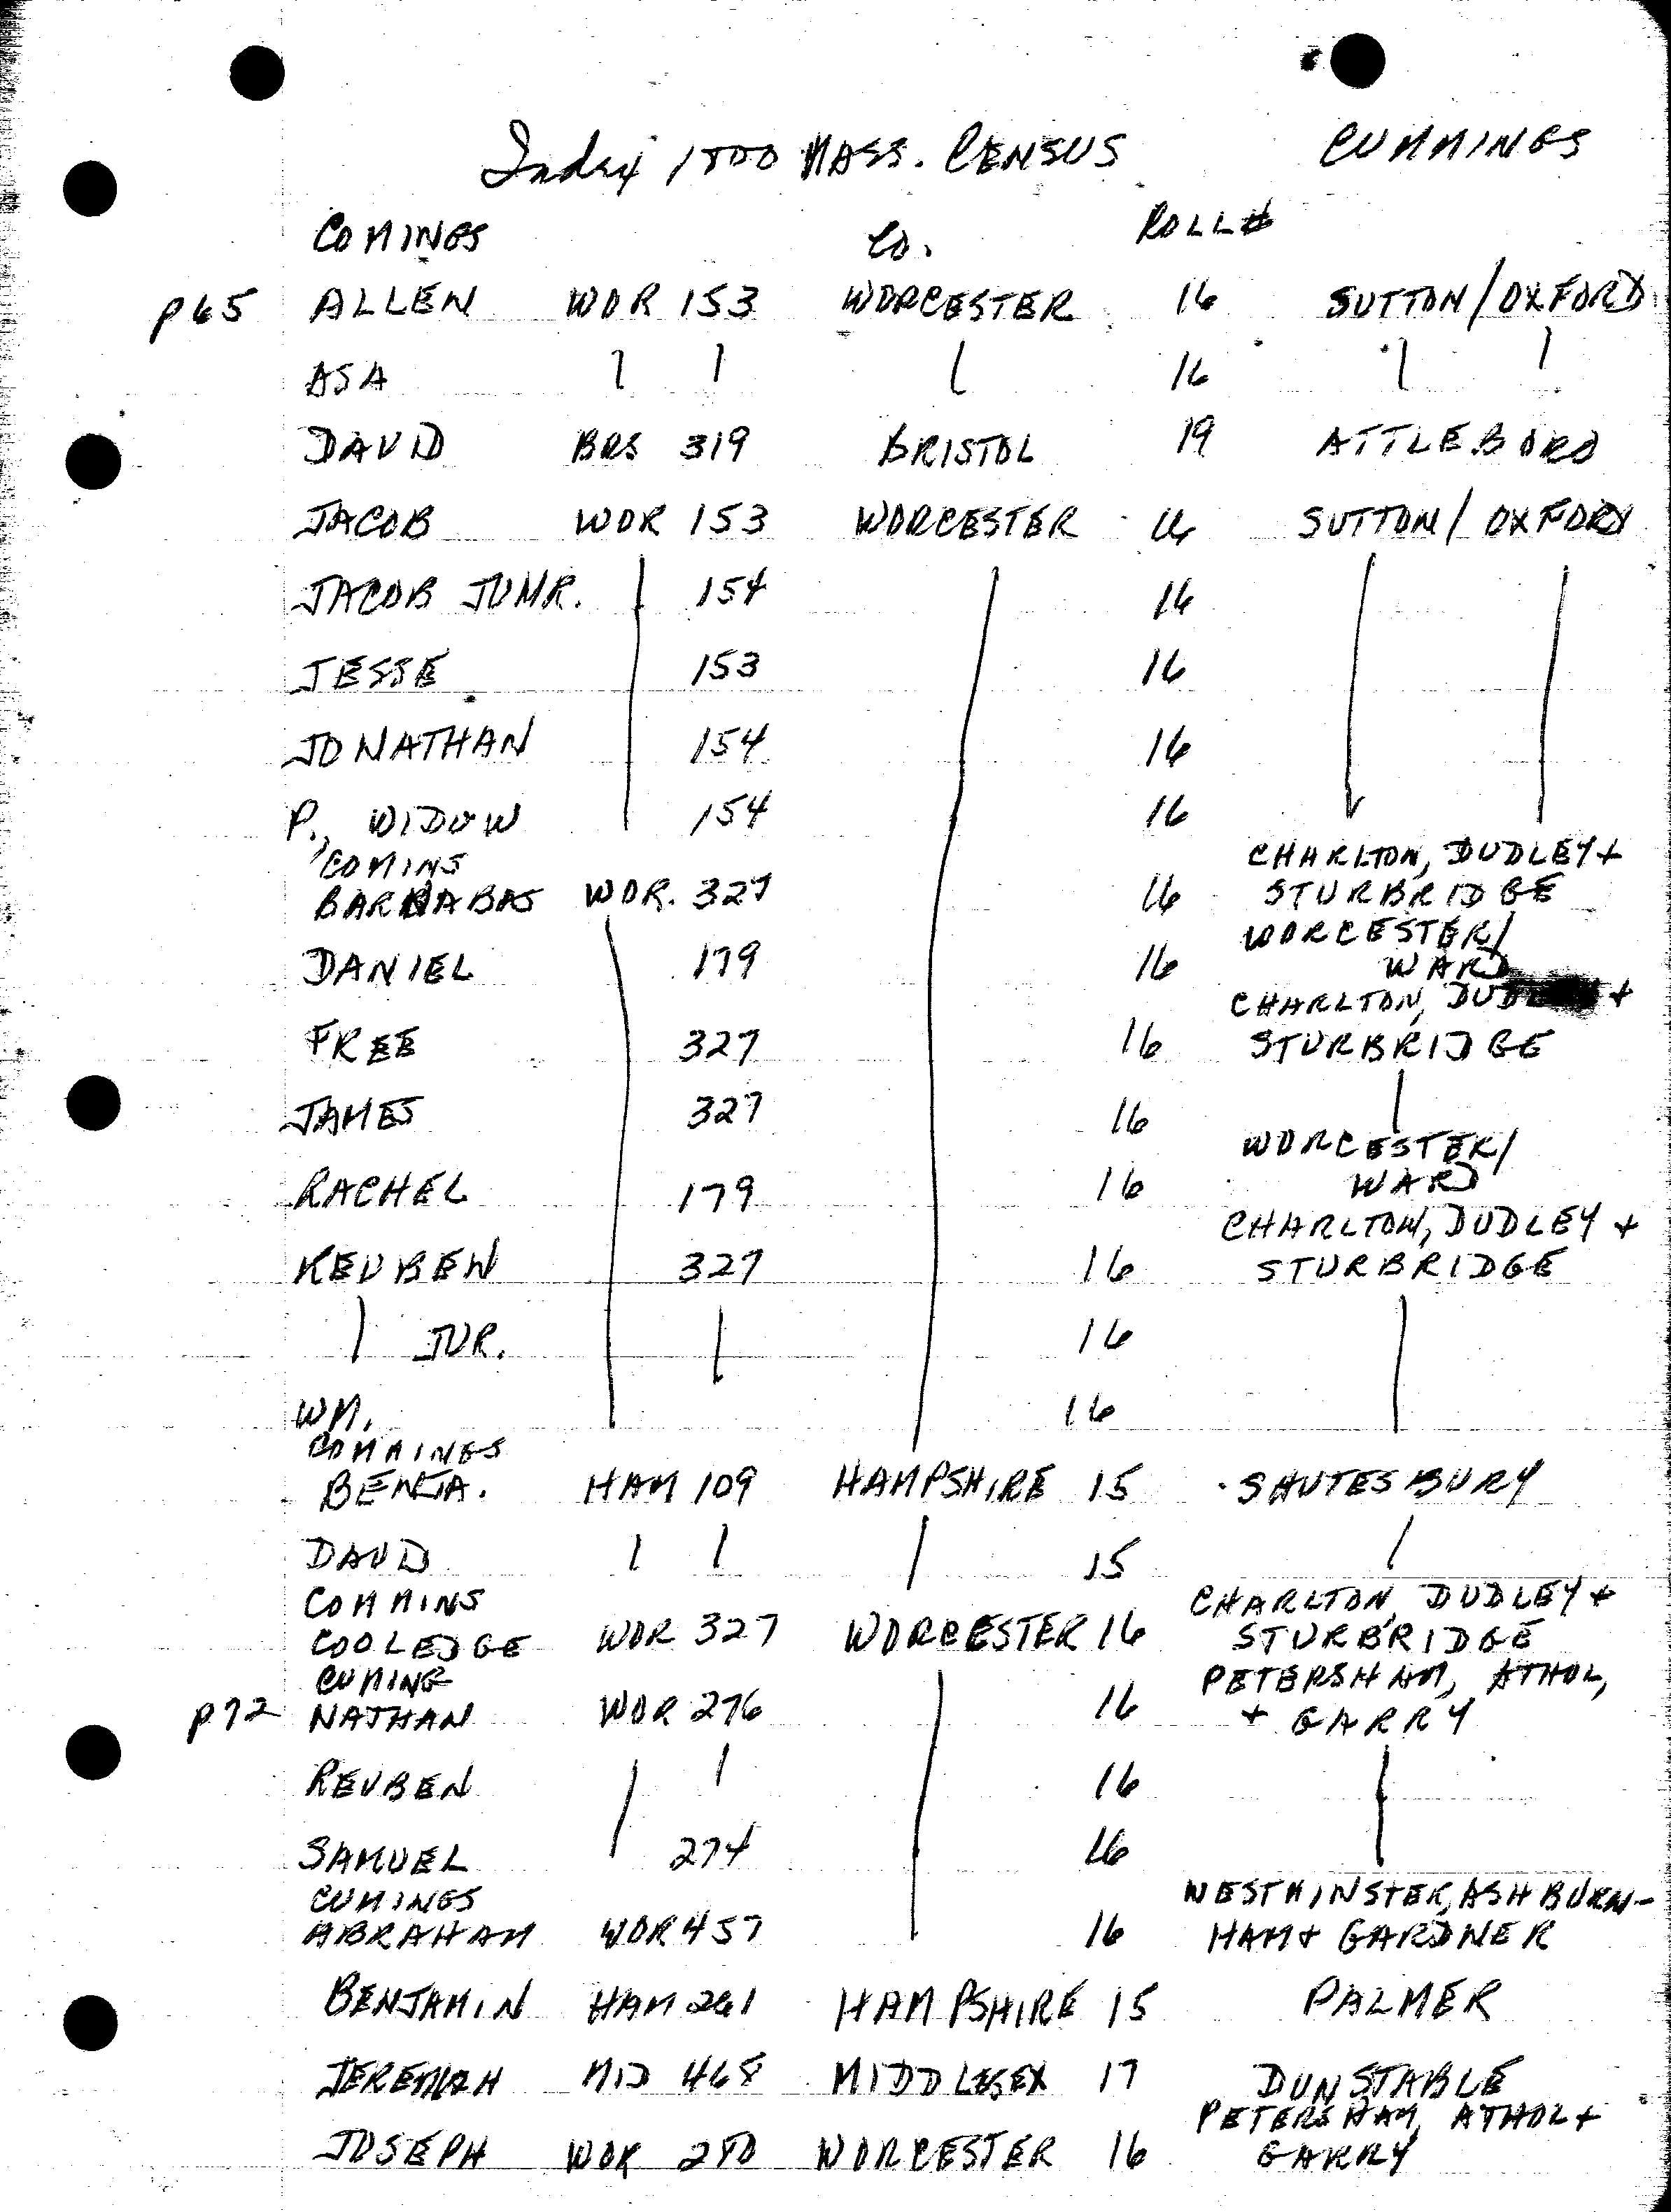 Index 1800 MASS. CENSUS CUMMINGS
COMINGS CO. ROLL#
p65 ALLEN WOR 153 WORCESTER 16 SUTTON/OXFORD
ASA | | | 16 | |
DAVID BRS 319 BRISTOL 19 ATTLEBORO
JACOB WOR 153 WORCESTER 16 SUTTON/OXFORD
JACOB JUNR. 154 16
JESSE 153 16
JONATHAN 154 16
P., WIDOW 154 16
COMINS CHARLTON, DUDLEY +
BARNABAS WOR. 327 16 STURBRIDGE
WORCESTER/
DANIEL 179 16 WARD
CHARLTON, DUDLEY +
FREE 327 16 STURBRIDGE
JAMES 327 16 |
WORCESTER/
RACHEL 179 16 WARD
CHARLTON, DUDLEY +
REUBEN 327 16 STURBRIDGE
| JUR. | 16
WM. 16
COMMINGS
BENJA. HAM 109 HAMPSHIRE 15 SHUTESBURY
DAVID | | | 15 |
COMMINS CHARLTON, DUDLEY +
COOLEDGE WOR 327 WORCESTER 16 STURBRIDGE
CUMING PETERSHAM, ATHOL,
p72 NATHAN WOR 276 16 + GARRY
REUBEN | | 16
SAMUEL 274 16
CUMINGS WESTMINSTER, ASHBURN-
ABRAHAM WOR 457 16 HAM + GARDNER
BENJAMIN HAM 261 HAMPSHIRE 15 PALMER
JEREMIAH MID 468 MIDDLESEX 17 DUNSTABLE
PETERSHAM, ATHOL +
JOSEPH WOR 280 WORCESTER 16 GARRY